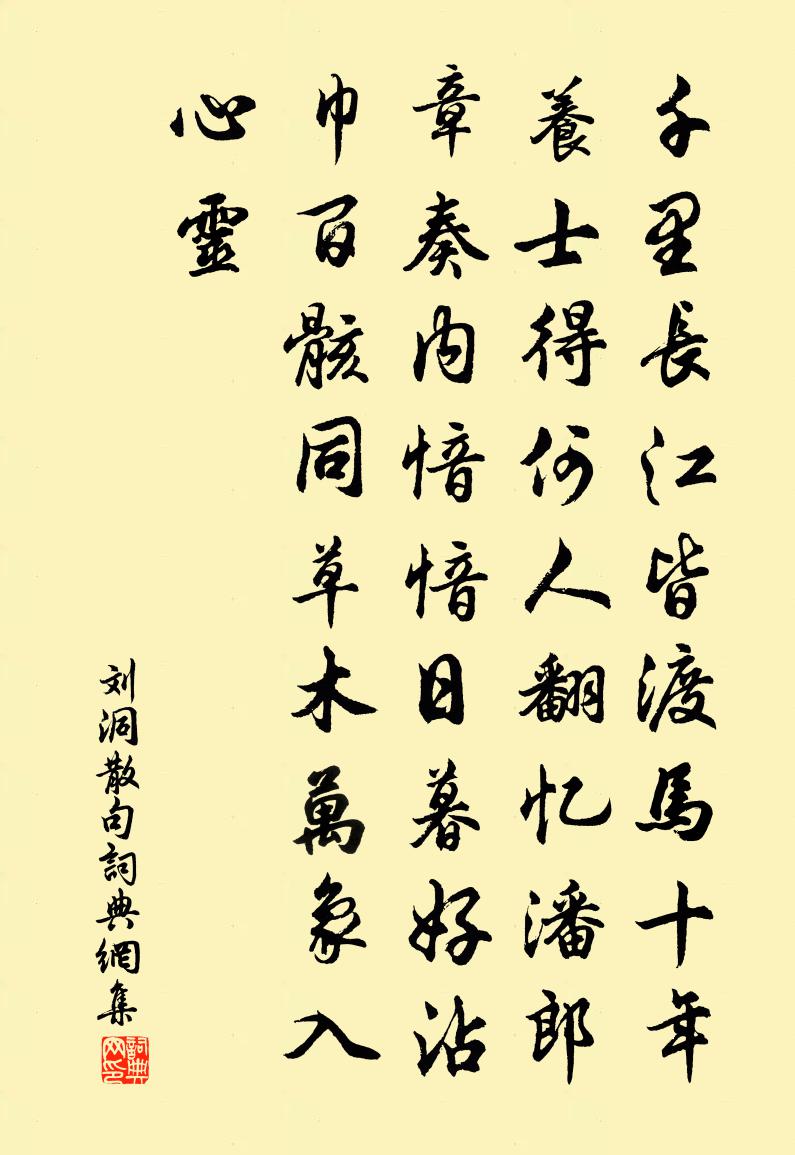 千里長江皆渡馬十年
養士得何人翻忆潘郎
章奏内愔愔日暮好沾
巾百骸同草木萬象入
心靈
刘洞散句詞典網集
詞典网印